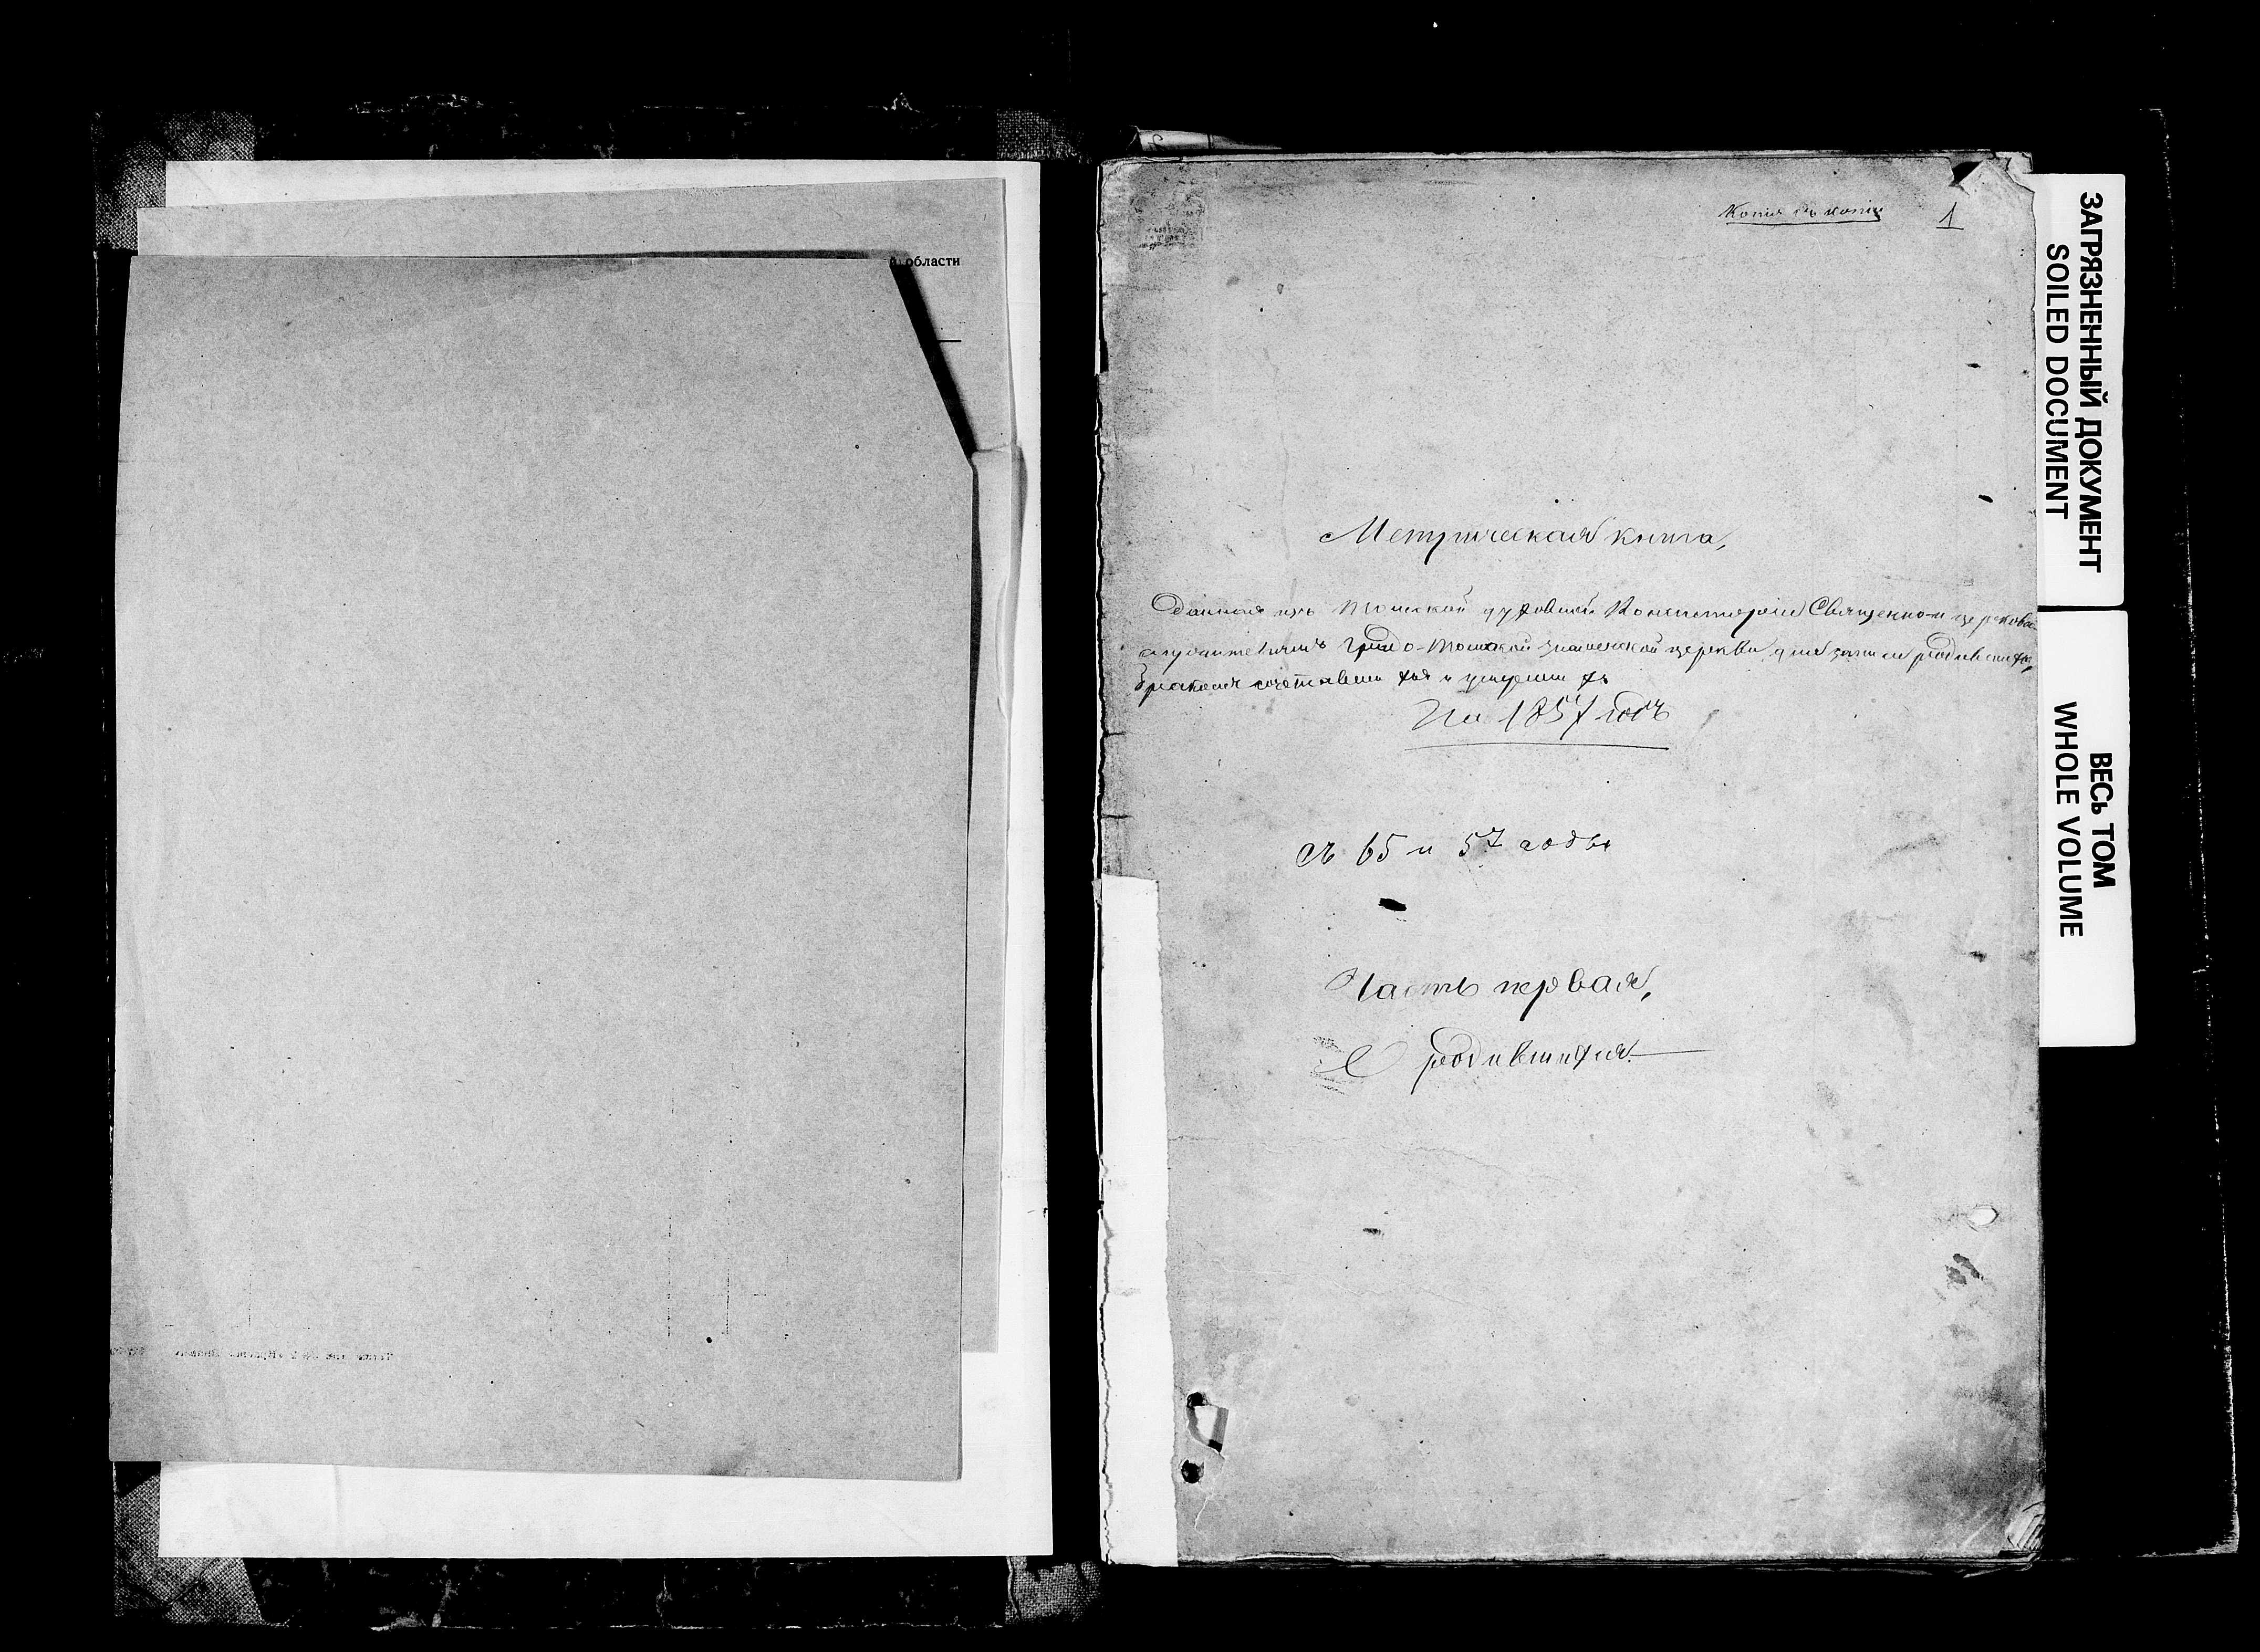 области
Копія съ копіи
1
Метрическая книга,
Данная изъ Томской духовной Консисторіи Священно-и церковно-
служителямъ градо-Томской Знаменской церкви, для записи родившихся,
бракомъ сочетавшихся и умершихъ
На 1857 годъ
съ 65 и 57 годы
Часть первая,
О родившихся.
ЗАГРЯЗНЕННЫЙ ДОКУМЕНТ
SOILED DOCUMENT
ВЕСЬ ТОМ
WHOLE VOLUME